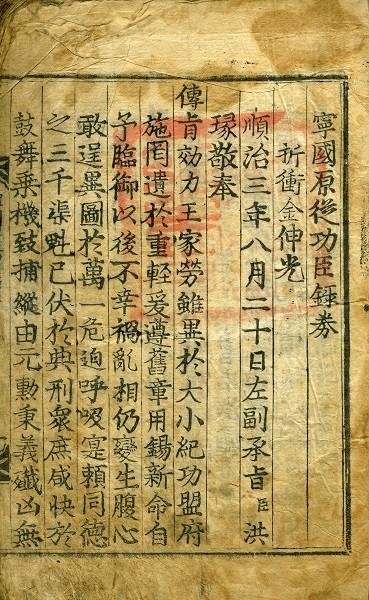 寧國原從功臣錄券
折衝金伸光
順治三年八月二十日左副承旨臣洪
瑑敬奉
傳旨效力王家勞雖異於大小紀功盟府
施罔遺於重輕爰遵舊章用錫新命自
予臨御以後不幸禍亂相仍變生腹心
敢逞異圖於萬一危迫呼吸寔賴同德
之三千渠魁已伏於典刑衆庶咸快於
鼓舞乘機捕縱由元勳秉義殲凶無